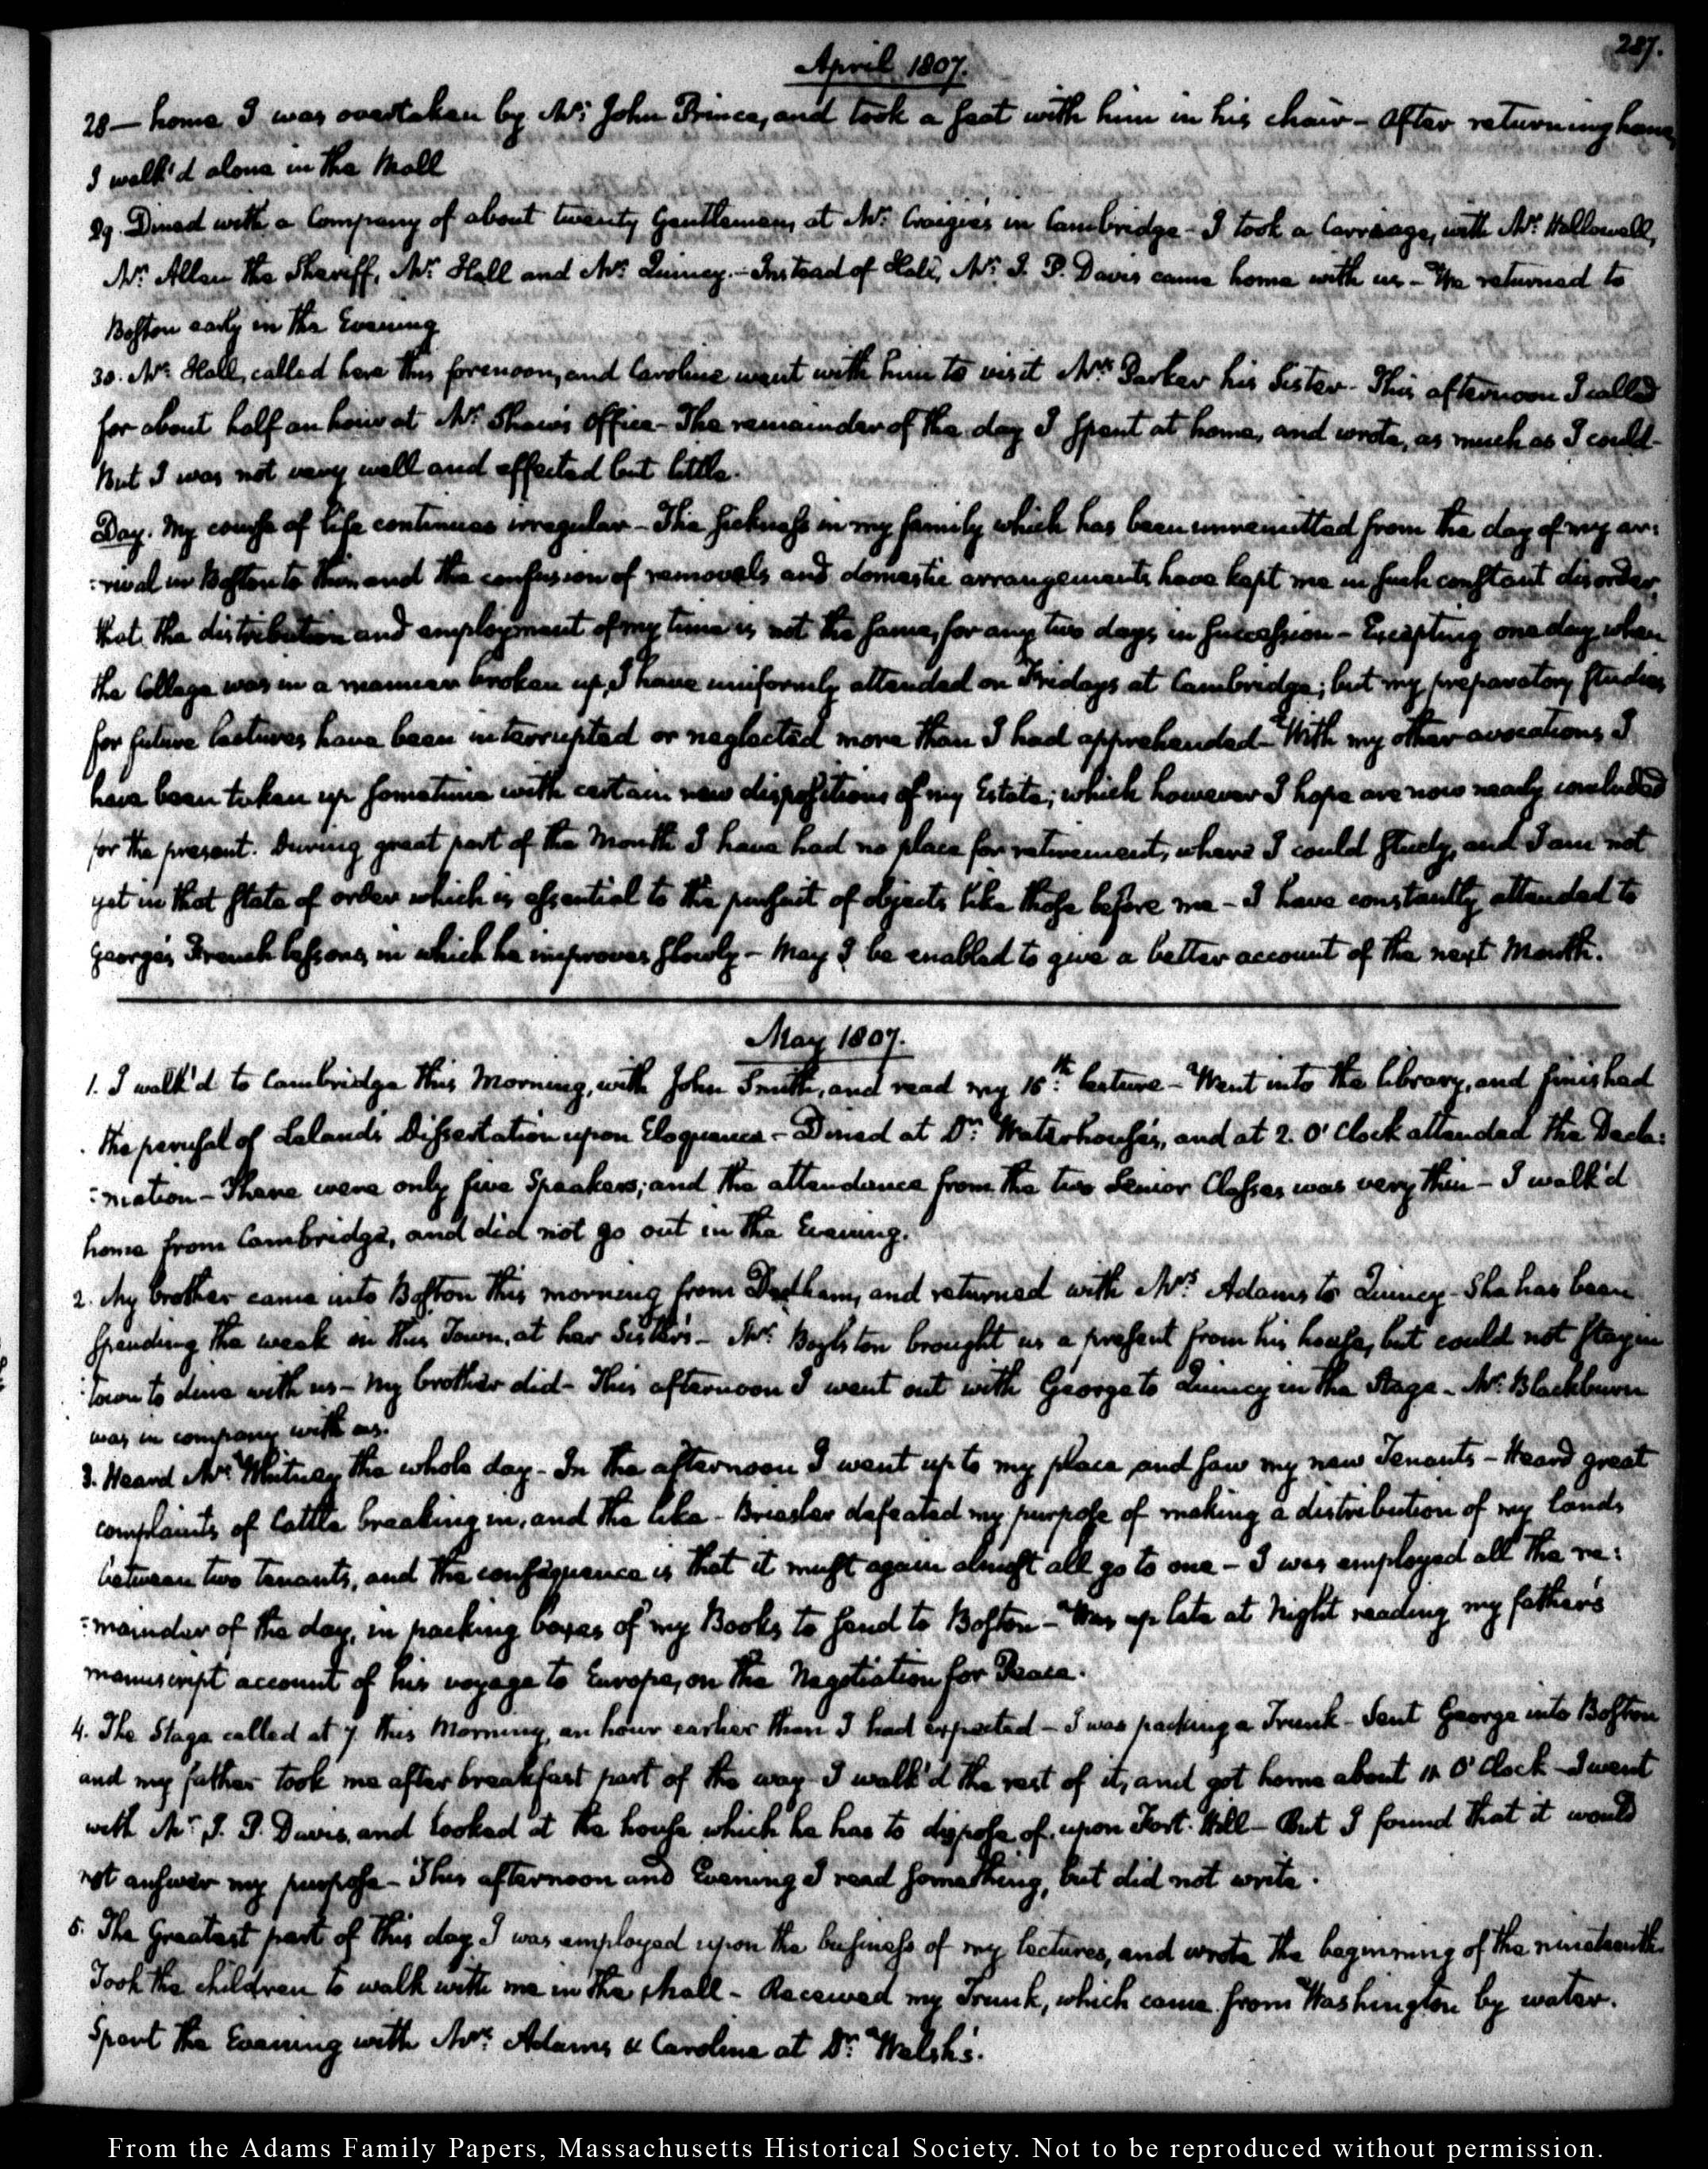 287.
April 1807.
28 — home I was overtaken by Mr: John Prince, and took a seat with him in his chair - After returning home,
I walk'd alone in the Mall
29. Dined with a Company of about twenty Gentlemen, at Mr: Craigie's in Cambridge - I took a Carriage, with Mr: Hallowell,
Mr: Allen the Sheriff, Mr: Hall and Mr: Quincy. - Instead of Hall, Mr: I. P. Davis came home with us - We returned to
Boston early in the Evening
30. Mr: Hall, called here this forenoon, and Caroline went with him to visit Mrs: Parker his Sister - This afternoon I called
for about half an hour at Mr: Shaw's office - The remainder of the day I spent at home, and wrote, as much as I could -
But I was not very well and effected but little.
Day. My course of life continues irregular - The sickness in my family which has been unremitted from the day of my ar:
:rival in Boston to this and the confusion of removals and domestic arrangements have kept me in such constant disorder,
that the distribution and employment of my time is not the same, for any two days, in succession - Excepting one day when
the College was in a manner broken up, I have uniformly attended on Fridays at Cambridge; but my preparatory studies
for future lectures have been interrupted or neglected more than I had apprehended - With my other avocations I
have been taken up sometime with certain new dispositions of my Estate; which however I hope are now nearly concluded
for the present. During great part of the Month I have had no place for retirement, where I could study, and I am not
yet in that state of order which is essential to the pursuit of objects like those before me - I have constantly attended to
George's French lessons, in which he improves slowly - May I be enabled to give a better account of the next Month.
May 1807.
1. I walk'd to Cambridge this Morning, with John Smith, and read my 15th: lecture - Went into the library, and finished
the perusal of Leland's Dissertation upon Eloquence - Dined at Dr: Waterhouse's, and at 2. O'Clock attended the Decla:
:mation - There were only five Speakers; and the attendance from the two Senior Classes was very thin - I walk'd
home from Cambridge, and did not go out in the Evening.
2. My brother came into Boston this morning from Dedham, and returned with Mrs: Adams to Quincy - She has been
spending the week in this Town, at her Sister's - Mr: Boylston brought us a present from his house, but could not stay in
town to dine with us - My brother did - This afternoon I went out with George to Quincy in the Stage - Mr: Blackburn
was in company with us.
3. Heard Mr: Whitney the whole day - In the afternoon I went up to my place and saw my new Tenants - Heard great
complaints of Cattle breaking in, and the like - Briesler defeated my purpose of making a distribution of my lands
between two tenants, and the consequence is that it must again almost all go to one - I was employed all the re:
:mainder of the day, in packing boxes of my Books to send to Boston - Was up late at Night reading my father's
manuscript account of his voyage to Europe, on the Negotiation for Peace.
4. The Stage called at 7 this Morning, an hour earlier than I had expected - I was packing a Trunk - Sent George into Boston
and my father took me after breakfast part of the way - I walk'd the rest of it, and got home about 11 O'Clock - I went
with Mr: I. P. Davis, and looked at the house which he has to dispose of, upon Fort-Hill - But I found that it would
not answer my purpose - This afternoon and Evening I read something, but did not write.
5. The Greatest part of this day I was employed upon the business of my lectures, and wrote the beginning of the nineteenth.
Took the children to walk with me in the Mall - Received my Trunk, which came from Washington by water.
Spent the Evening with Mrs: Adams & Caroline at Dr: Welsh's.
From the Adams Family Papers, Massachusetts Historical Society. Not to be reproduced without permission.